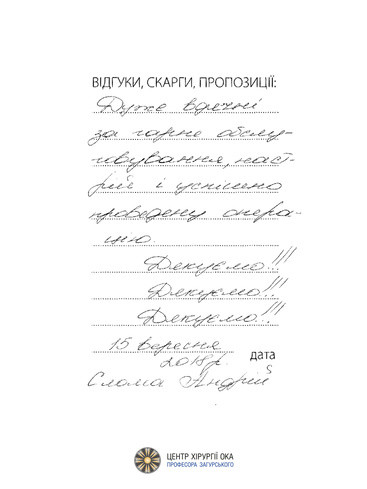 ВІДГУКИ, СКАРГИ, ПРОПОЗИЦІЇ:
Дуже вдячні
за гарне обслу-
говування, наст-
рій і успішно
проведену опера-
цію.
Дякуємо!!!
Дякуємо!!!
Дякуємо!!!
15 вересня
2018р. дата
Слома Андрій
ЦЕНТР ХІРУРГІЇ ОКА
ПРОФЕСОРА ЗАГУРСЬКОГО